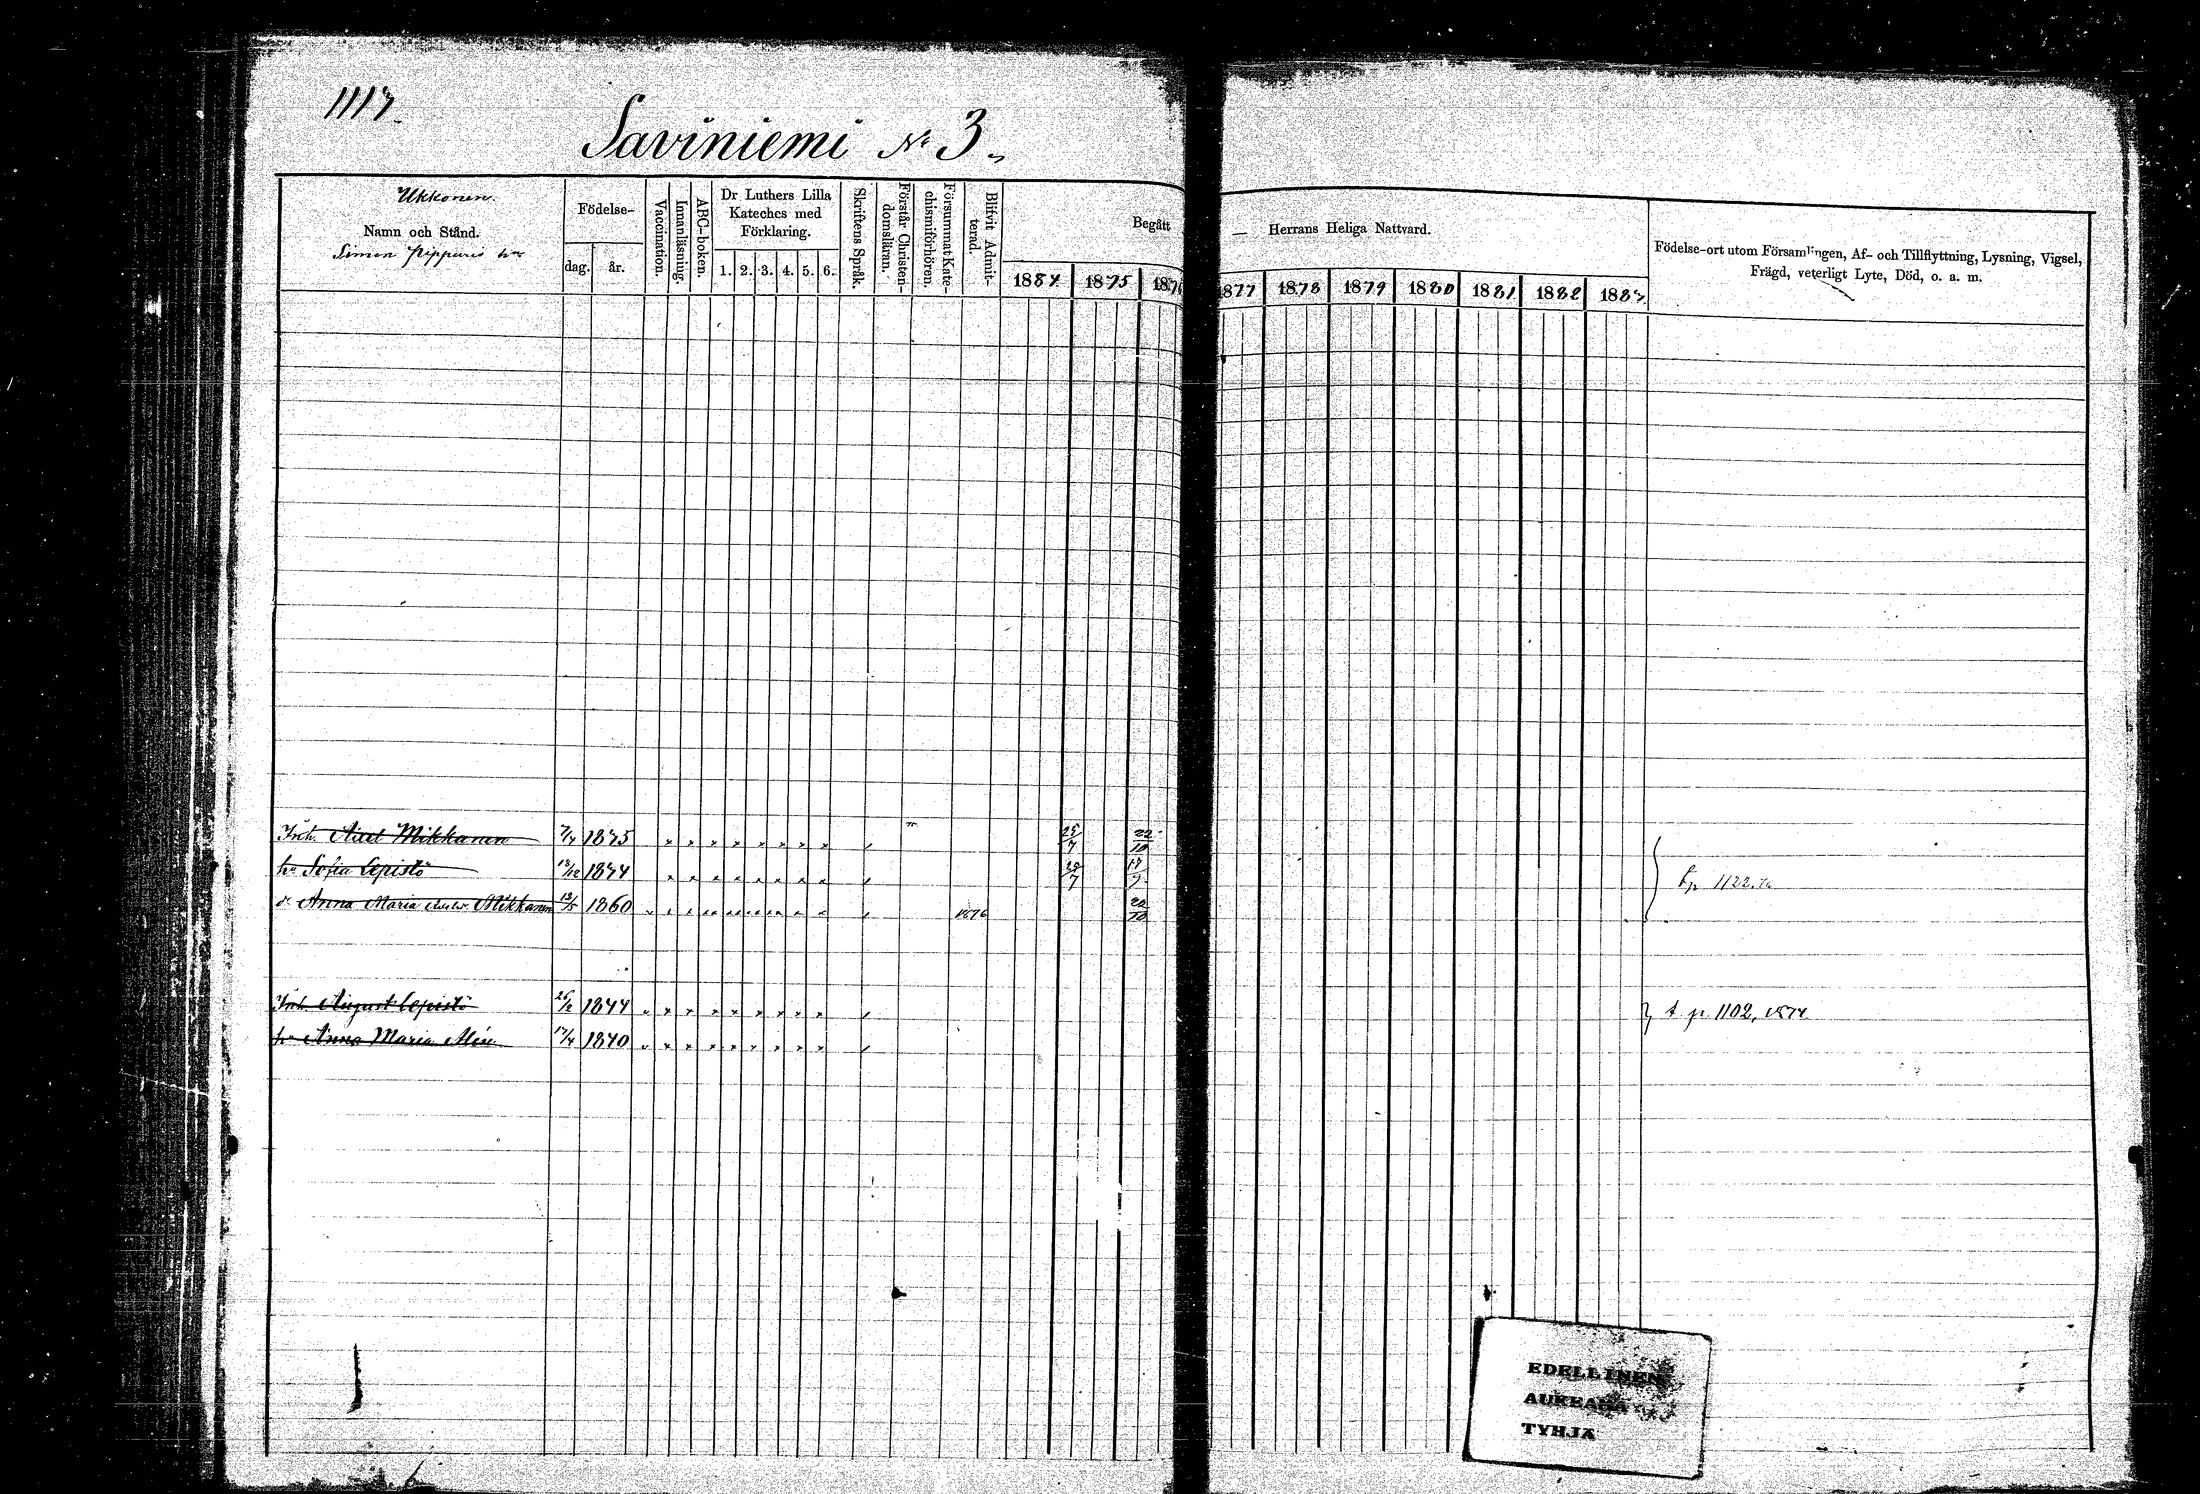 1117.
Saviniemi No 3.
Ukkonen.
Namn och Stånd.
Simon Pipparis hus
Födelse-
dag. år.
Vaccination.
Innanläsning.
ABC-boken.
Dr Luthers Lilla
Kateches med
Förklaring.
1. 2. 3. 4. 5. 6.
Skriftens Språk.
Förstår Christen-
domsläran.
Försummat Kate-
chismiförhören.
Blifvit Admit-
terad.
Begått
1884 1875 1876
— Herrans Heliga Nattvard.
1877 1878 1879 1880 1881 1882 1883
Födelse-ort utom Församlingen, Af- och Tillflyttning, Lysning, Vigsel,
Frägd, veterligt Lyte, Död, o. a. m.
Inh. Axel Mikkanen 1845 25/7 22/10
hu Sofia Lepistö 18/12 1844 25/7 17/9
d. Anna Maria Mikkanen 12/5 1860 1876 22/10
p 1122.
Inh. August Lepistö 26/2 1844
t p 1102, 1874
hu Anna Maria 17/4 1840
EDELLINEN
AUKEAMA
TYHJÄ